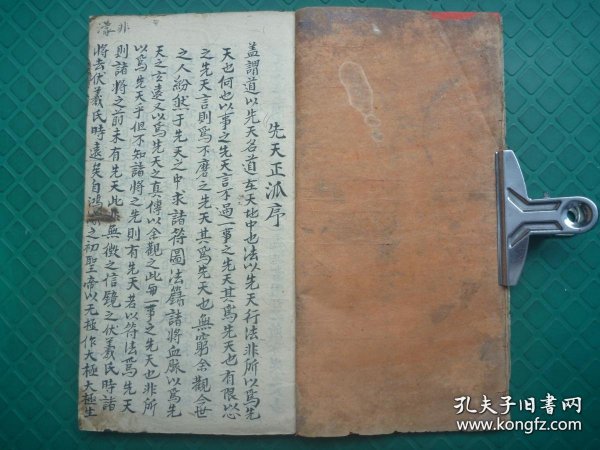 先天正派序
盖謂道以先天名道在天地中也法以先天行法非所以爲先
天也何也以事之先天言不過一事之先天其爲先天也有限以心
之先天言則爲不磨之先天其爲先天也無窮余觀今世
之人紛然于先天之中求諸符圖法籙諸將血脉以爲先
天之玄遠又以爲先天之真傳以余觀之此毎一事之先天也非所
以爲先天乎但不知諸將之先則有先天若以符法爲先天
則諸將之前未有先天此非無徵之信鏡之伏羲氏時諸
將去伏羲氏時遠矣自鴻之初聖帝以无極作大極大極生
非濛
孔夫子旧书网
www.kongfz.com